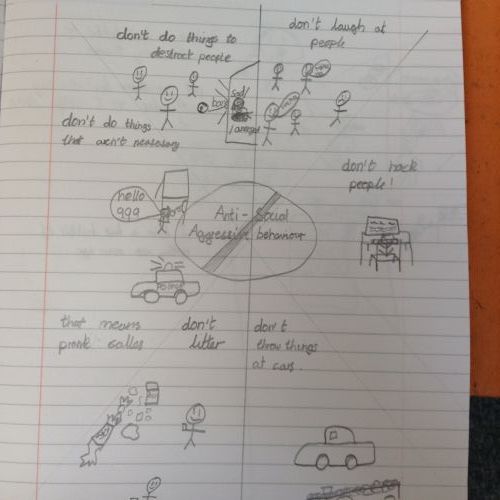 don't do things to
destract people
don't laugh at
people
bang
sad/
/annoyed
haha
haha
don't do things
that aren't nessesary
don't hack
people!
hello
999
Anti - Social
Aggressive behaviour
POLICE
that means
prank calles
don't
litter
don't
throw things
at cars.